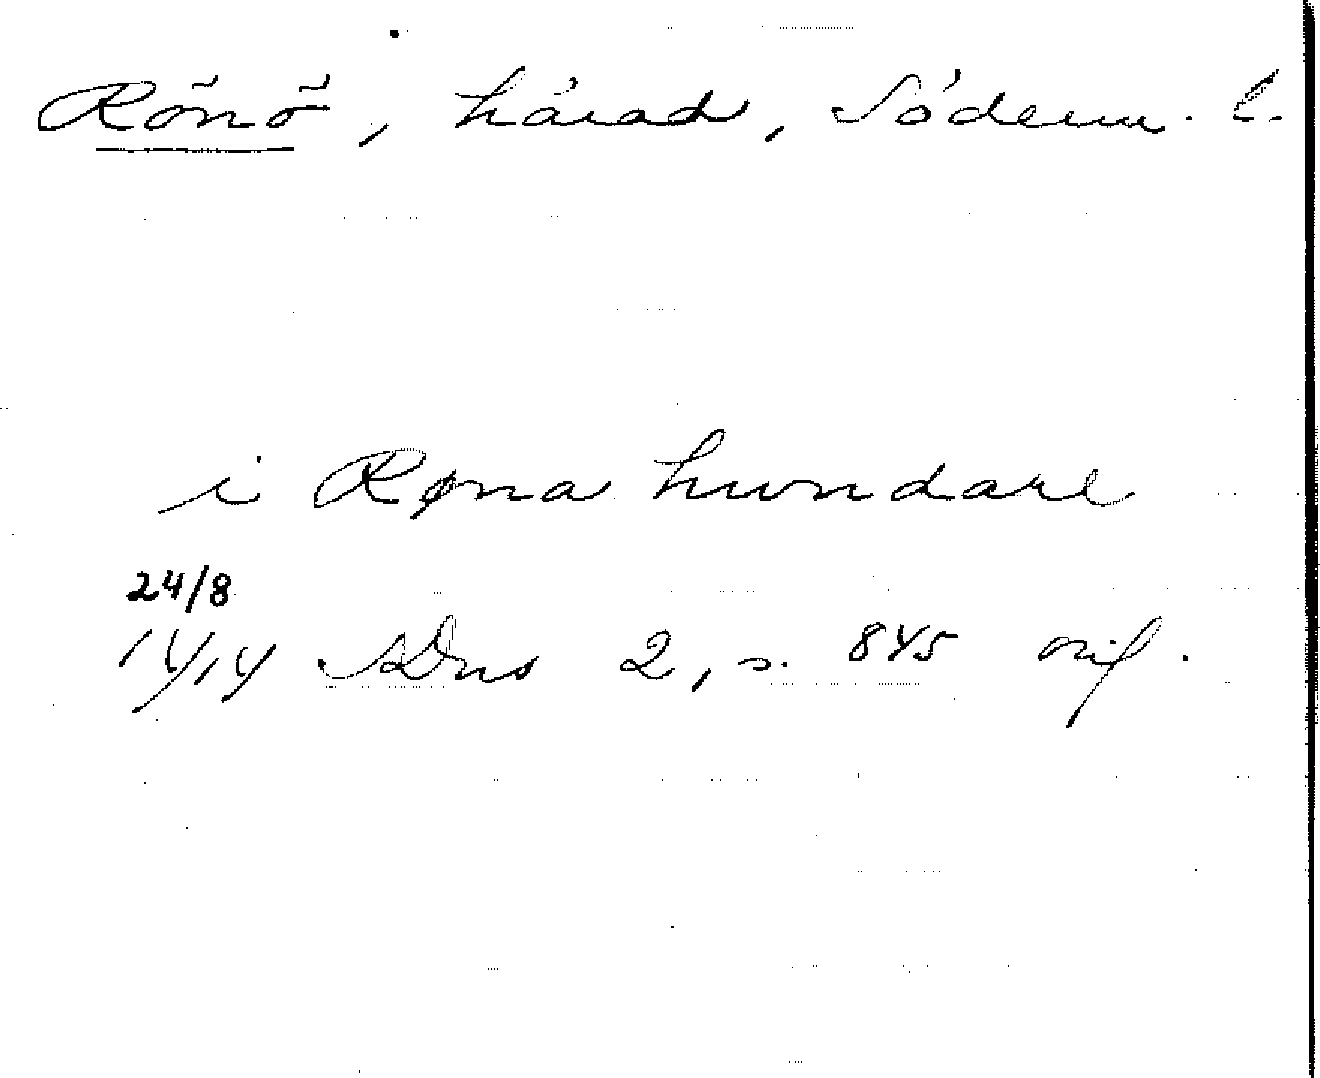 Rönö, härad, Söderm. l.
i Røna hundare
24/8
1414 SDns 2, s. 845 orig.